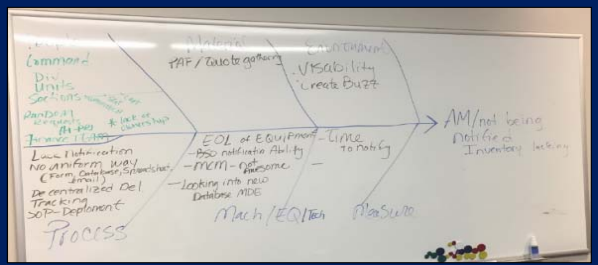 People
Command
Div
Units
Sections
Random
Requests
* lack of
ownership
Material
PAF / Quote gathering
Environment
. Visability
. Create Buzz
AM/not being
notified
Inventory lacking
Lack Notification
No uniform way
(Form, Database, Spreadsheet,
Email)
Decentralized Del
Tracking
SOP-Deploment
Process
EOL of EQuipment
-BSO notification Ability
-MCM-not
Awesome
-Looking into new
Database MDE
Mach/EQ/Tech
-Time
to notify
-
Measure